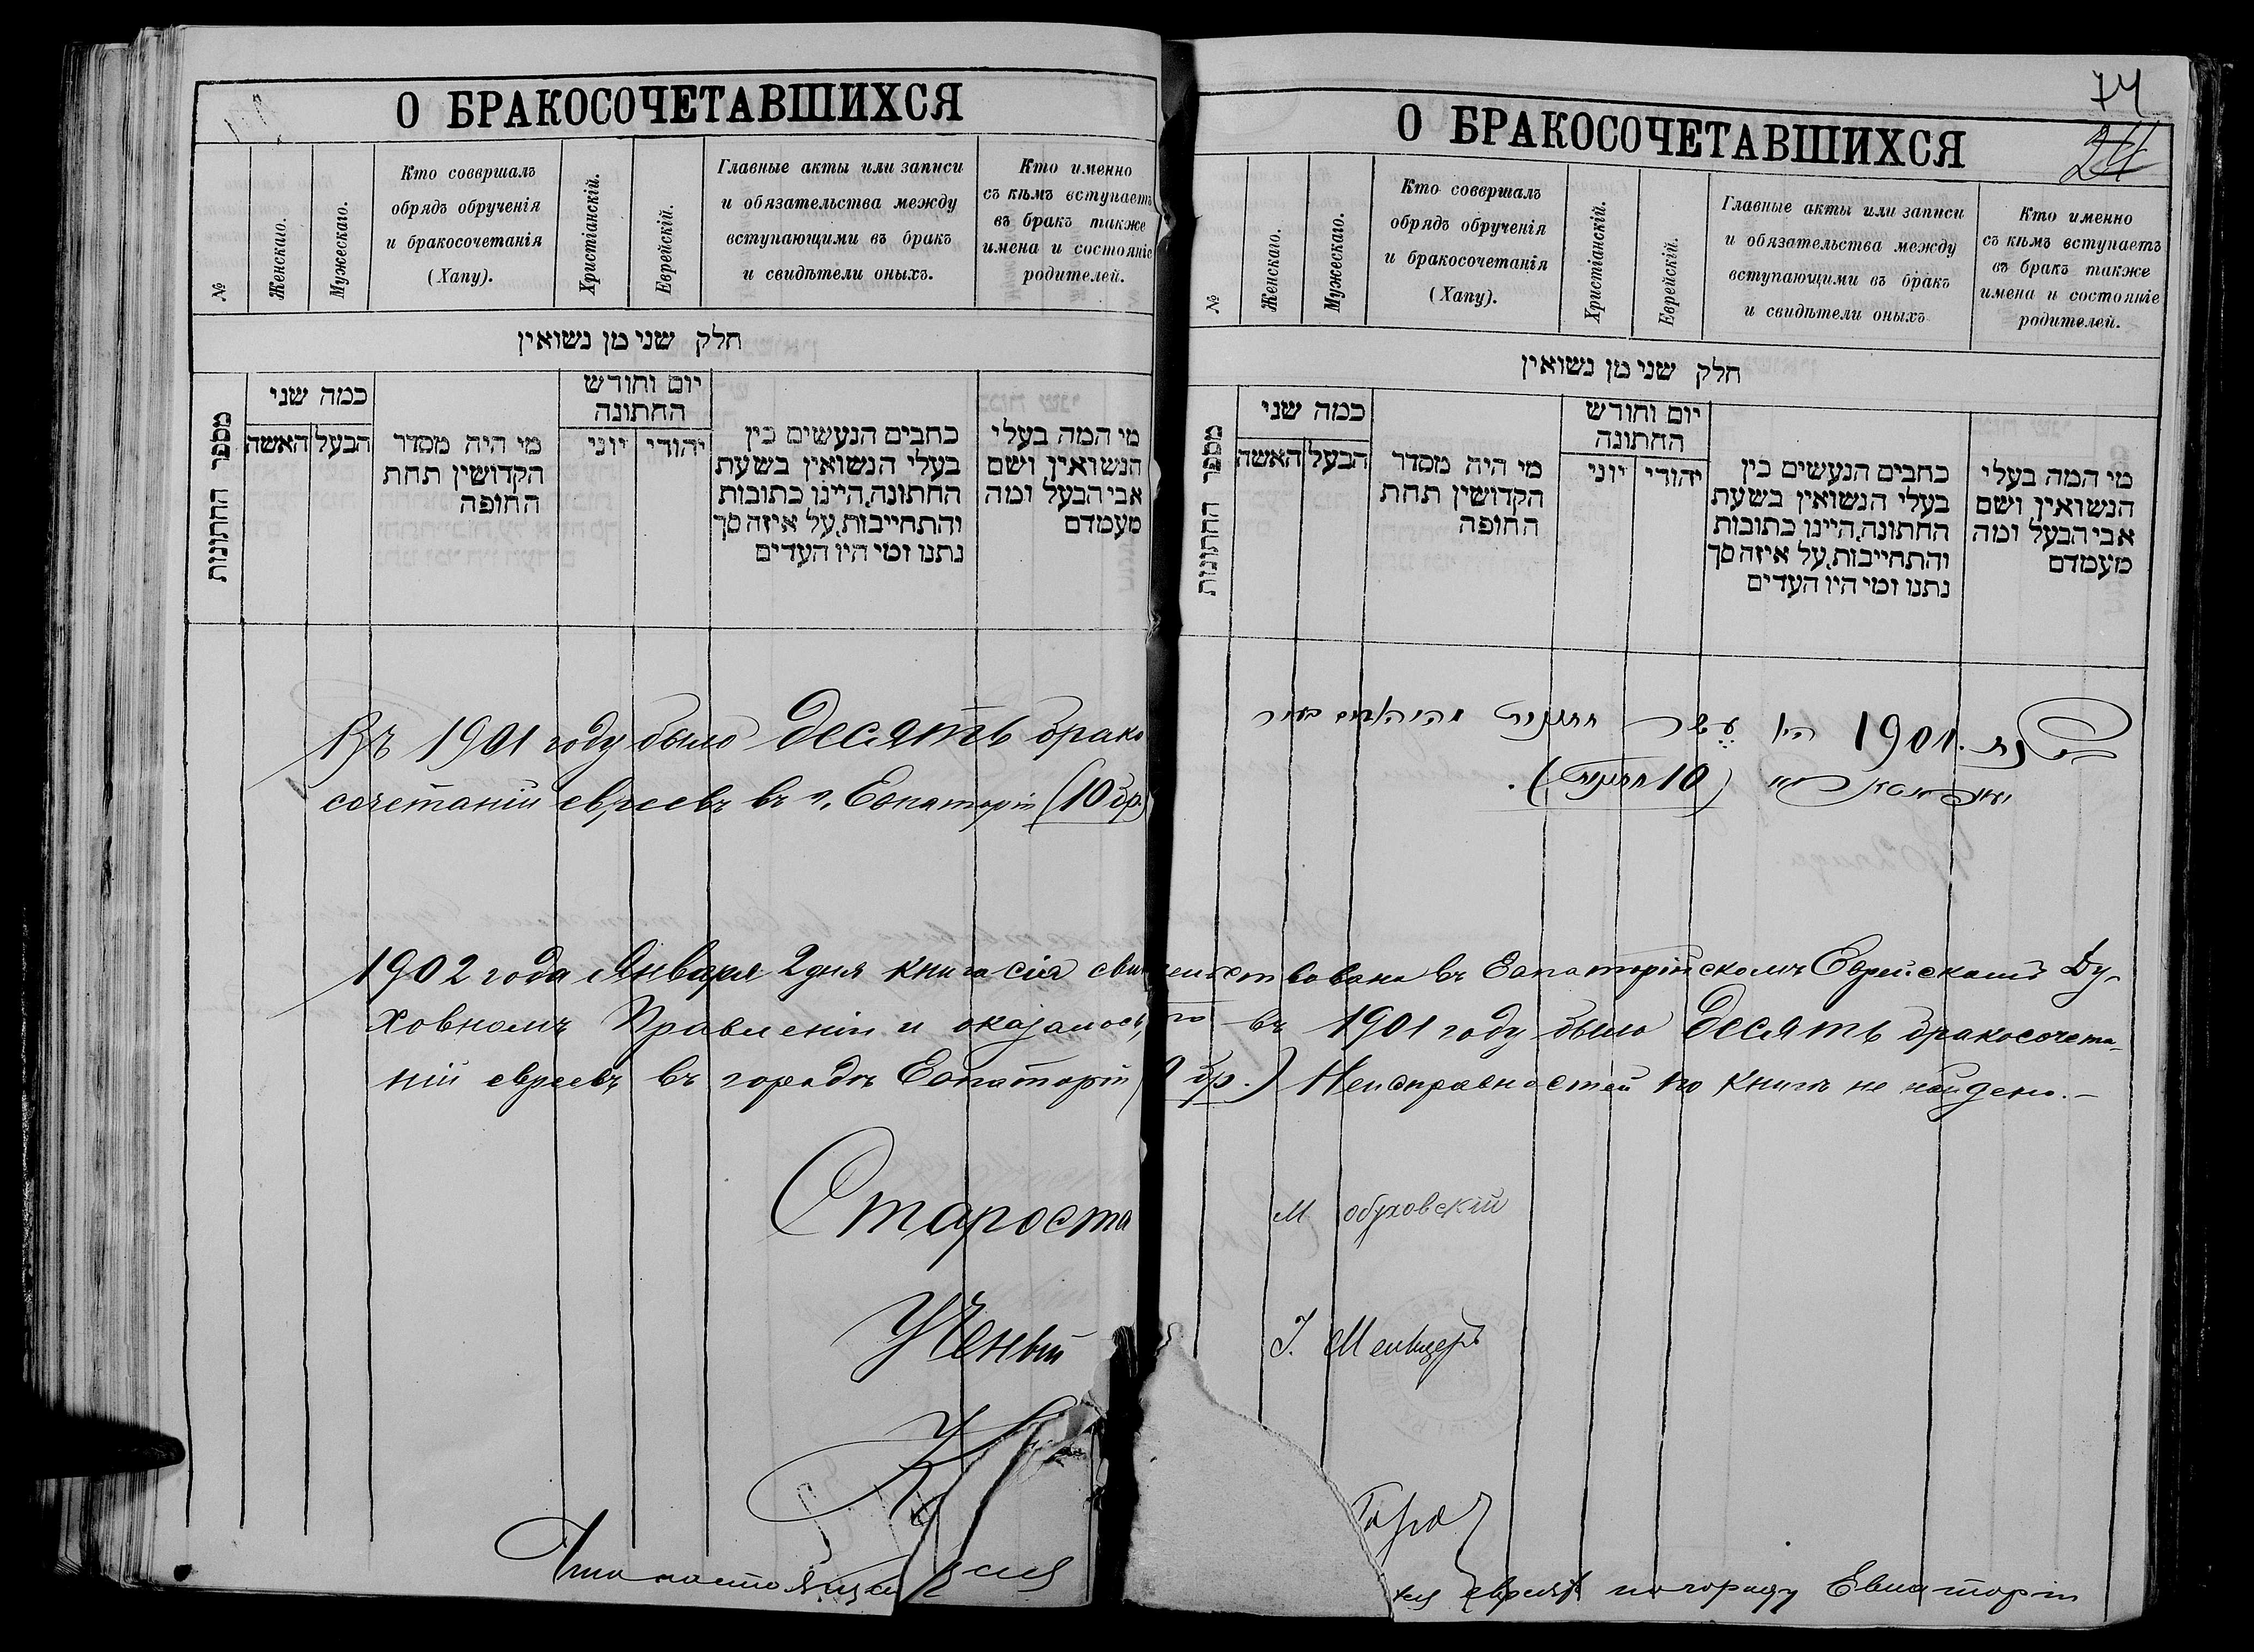 О БРАКОСОЧЕТАВШИХСЯ
№
Женскаго.
Мужескаго.
Кто соввршалъ
обрядъ обрученія
и бракосочетанія
(Хапу).
Христіанскій.
Еврейскій.
Главные акты или записи
и обязательства между
вступающими въ бракъ
и свидѣтели оныхъ.
Кто именно
съ кѣмъ вступаетъ
въ бракъ также
имена и состояніе
родителей.
חלק שני מן נשואין
מספר החתונות
כמה שני
האשה
הבעל
מי היה מסדר
הקדושין תחת
החופה
יום וחודש
החתונה
יוני
יהודי
כתבים הנעשים בין
בעלי הנשואין בשעת
החתונה, היינו כתובות
והתחייבות, על איזה סך
נתנו ומי היו העדים
מי המה בעלי
הנשואין ושם
אבי הבעל ומה
מעמדם
Въ 1901 году было десять брако
сочетаній евреевъ въ г. Евпаторіи (10 бр.)
1902 года Января 2 дня книга сія сви
ховномъ Правленіи и оказалось,
ній евреевъ въ городѣ Евпаторіи
Староста
Ученый
74
24
О БРАКОСОЧЕТАВШИХСЯ
№
Женскаго.
Мужескаго.
Кто соввршалъ
обрядъ обрученія
и бракосочетанія
(Хапу).
Христіанскій.
Еврейскій.
Главные акты или записи
и обязательства между
вступающими въ бракъ
и свидѣтели оныхъ
Кто именно
съ кѣмъ вступаетъ
въ бракъ также
имена и состояніе
родителей.
חלק שני מן נשואין
מספר החתונות
כמה שני
האשה
הבעל
מי היה מסדר
הקדושין תחת
החופה
יום וחודש
החתונה
יוני
יהודי
כתבים הנעשים בין
בעלי הנשואין בשעת
החתונה, היינו כתובות
והתחייבות, על איזה סך
נתנו ומי היו העדים
מי המה בעלי
הנשואין ושם
אבי הבעל ומה
מעמדם
בשנת 1901 היו עשר חתונות מהיהודים בעיר
(10 חתונות).
тельствована въ Евпаторійскомъ Еврейскомъ Ду-
въ 1901 году было десять бракосочета-
бр.) Неисправностей по книгѣ не найдено.—
М Обуховскій
I. Мельцеръ
евреевъ по городу Евпаторіи